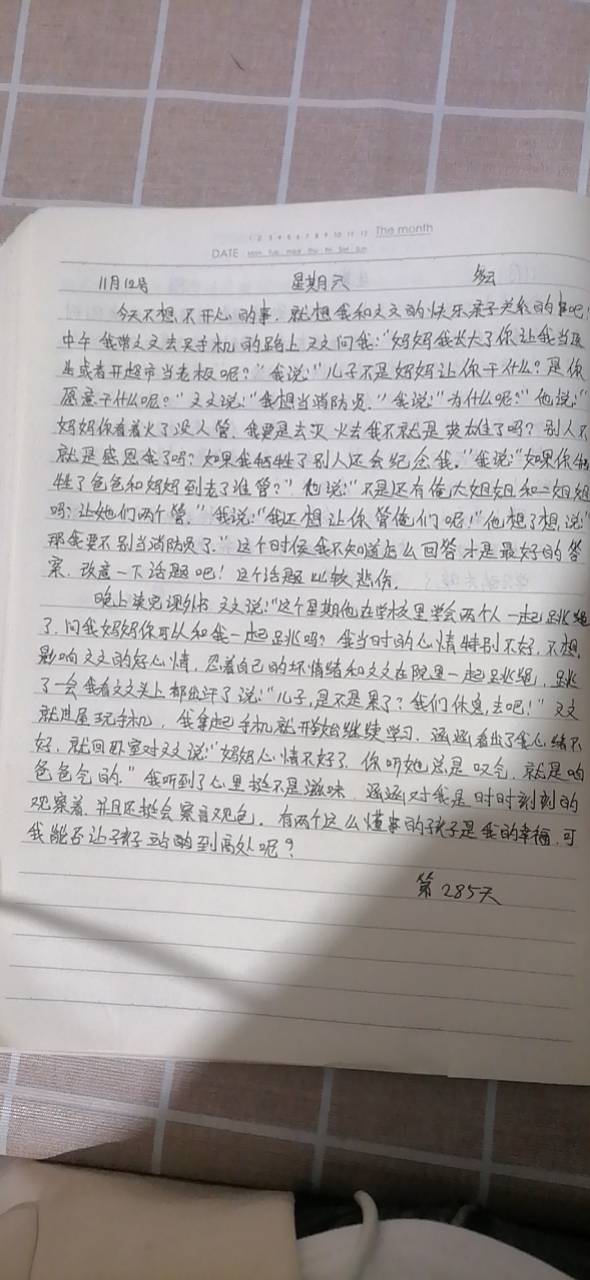 1 2 3 4 5 6 7 8 9 10 11 12 The month
DATE Mon Tue Wed Thu Fri Sat Sun
11月12号 星期六 多云
今天不想不开心的事,就想我和文文的快乐亲子关系的事吧!
中午我带文文去买手机的路上文文问我:"妈妈我长大了你让我当
或者开超市当老板呢?"我说:"儿子不是妈妈让你干什么?是你
愿意干什么呢?"文文说:"我想当消防员."我说:"为什么呢?"他说:"
妈妈你看着火了没人管,我要是去灭火去我不就是英雄了吗?别人不
就是感恩我了吗?如果我牺牲了别人还会纪念我."我说:"如果你牺
牲了爸爸和妈妈到老了谁管?"他说:"不是还有俺大姐姐和二姐姐
吗?让她们两个管."我说:"我还想让你管俺们呢!"他想了想,说:"
那我要不别当消防员了."这个时候我不知道怎么回答才是最好的答
案,改变一下话题吧!这个话题比较悲伤.
晚上读完课外书文文说:"这个星期他在学校里学会两个人一起跳绳
了,问我妈妈你可以和我一起跳吗?我当时的心情特别不好,不想
影响文文的好心情,忍着自己的坏情绪和文文在院里一起跳绳,跳
了一会我看文文头上都出汗了说:"儿子,是不是累了?我们休息去吧!"文文
就进屋玩手机,我拿起手机就开始继续学习,涵涵看出了我心绪不
好,就回卧室对文文说:"妈妈心情不好了,你听她总是叹气,就是咱
爸爸气的."我听到了心里挺不是滋味,涵涵对我是时时刻刻的
观察着,并且还挺会察言观色,有两个这么懂事的孩子是我的幸福,可
我能否让孩子站的到高处呢?
第285天